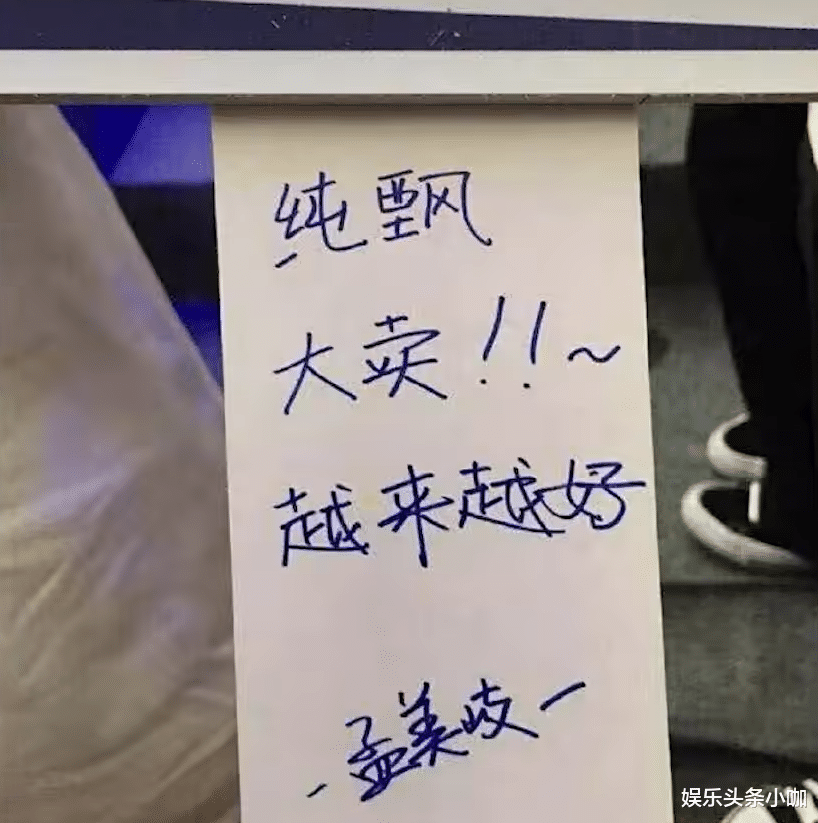 纯飘
大卖!!~
越来越好
-孟美岐-
娱乐头条小咖